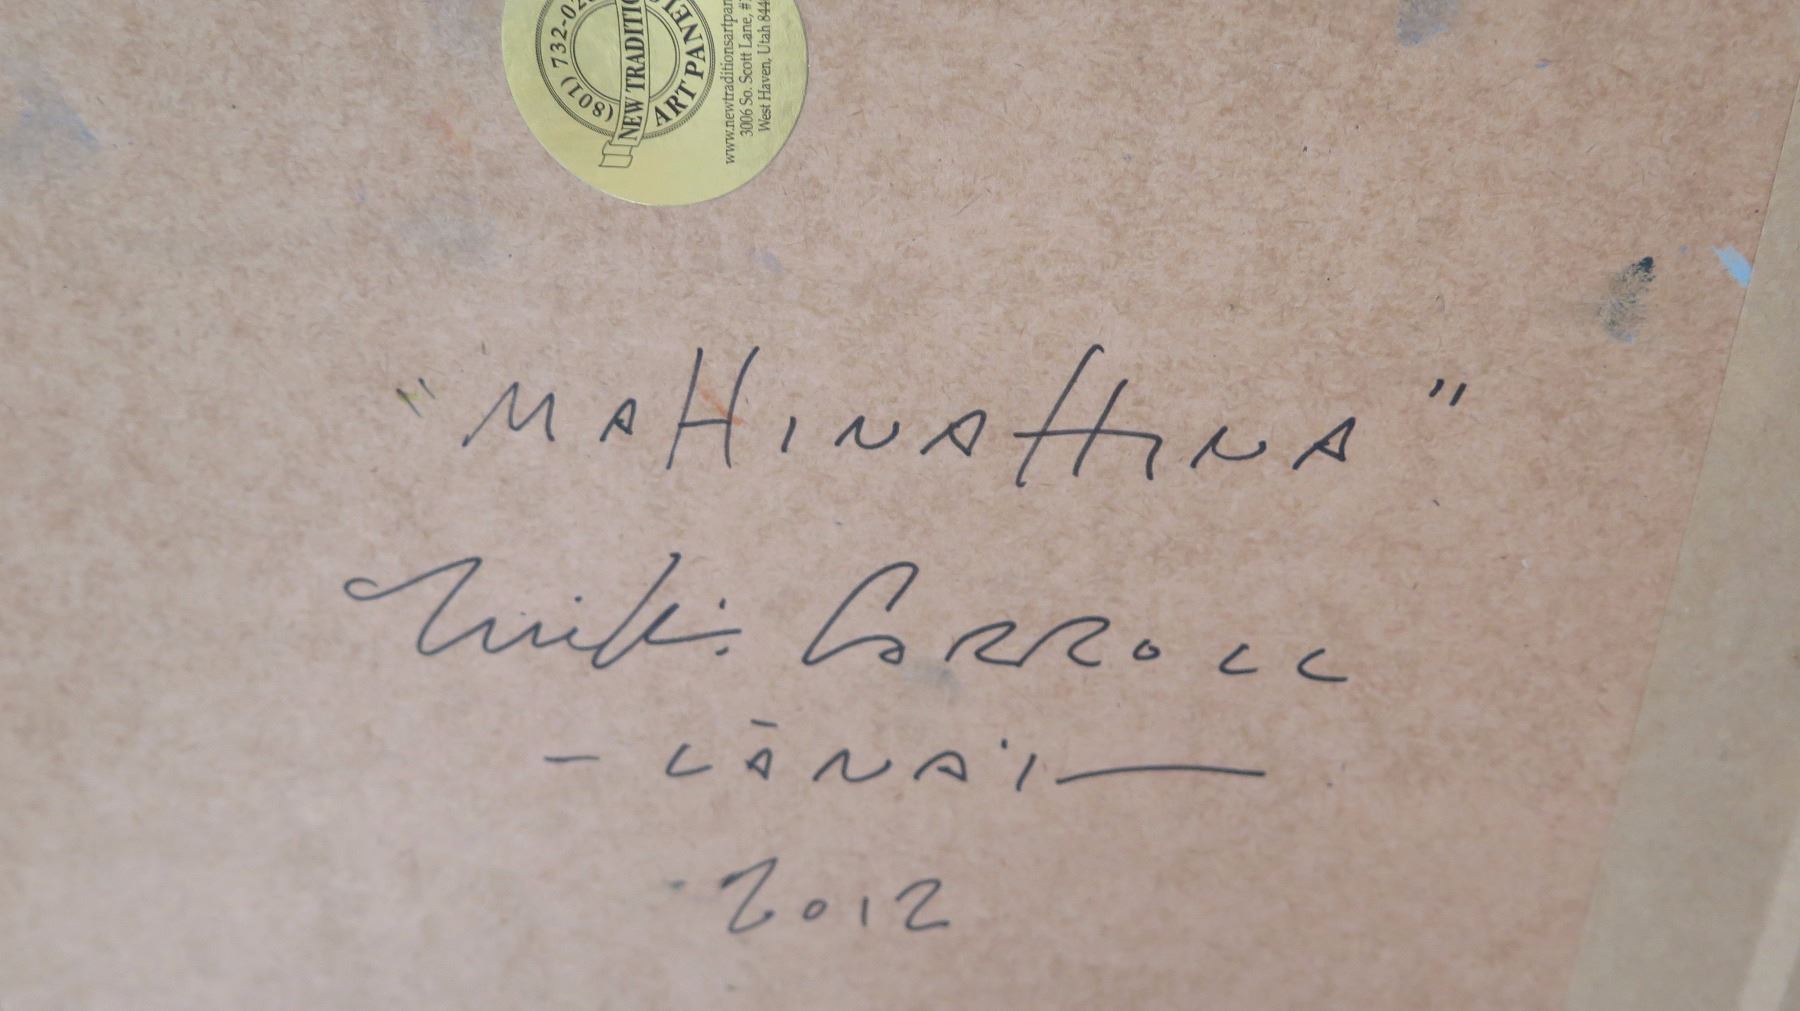 (801) 732-02
NEW TRADITIO
ART PANEL
www.newtraditionsartpan
3006 So. Scott Lane, #
West Haven, Utah 844
"MAHINAHINA"
Mike Carroll
- LĀNA'I —
2012